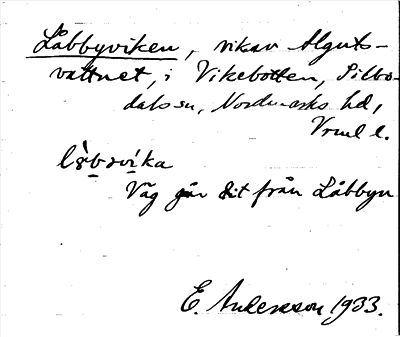 Låbbyviken, vik av Älguts-
vattnet, i Vikebotten, Silbo-
dals sn, Nordmarks hd,
Vrml l.
Väg går dit från Låbbyn
E. Andersson 1933.